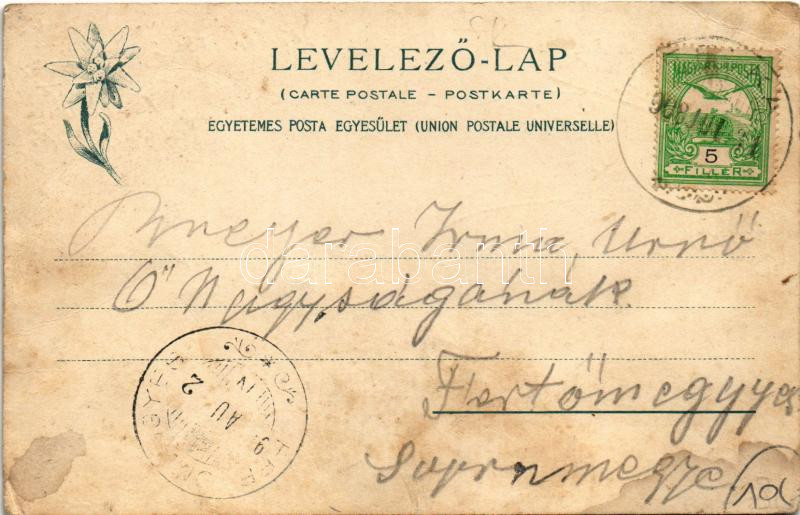 LEVELEZŐ-LAP
(CARTE POSTALE – POSTKARTE)
EGYETEMES POSTA EGYESÜLET (UNION POSTALE UNIVERSELLE)
MAGYAR KIR. POSTA
5
FILLÉR
908 JUL 31
Irma Urnő
Ő Nagyságának
Fertőmegyes
Sopronmegye
AU 2
darabanth